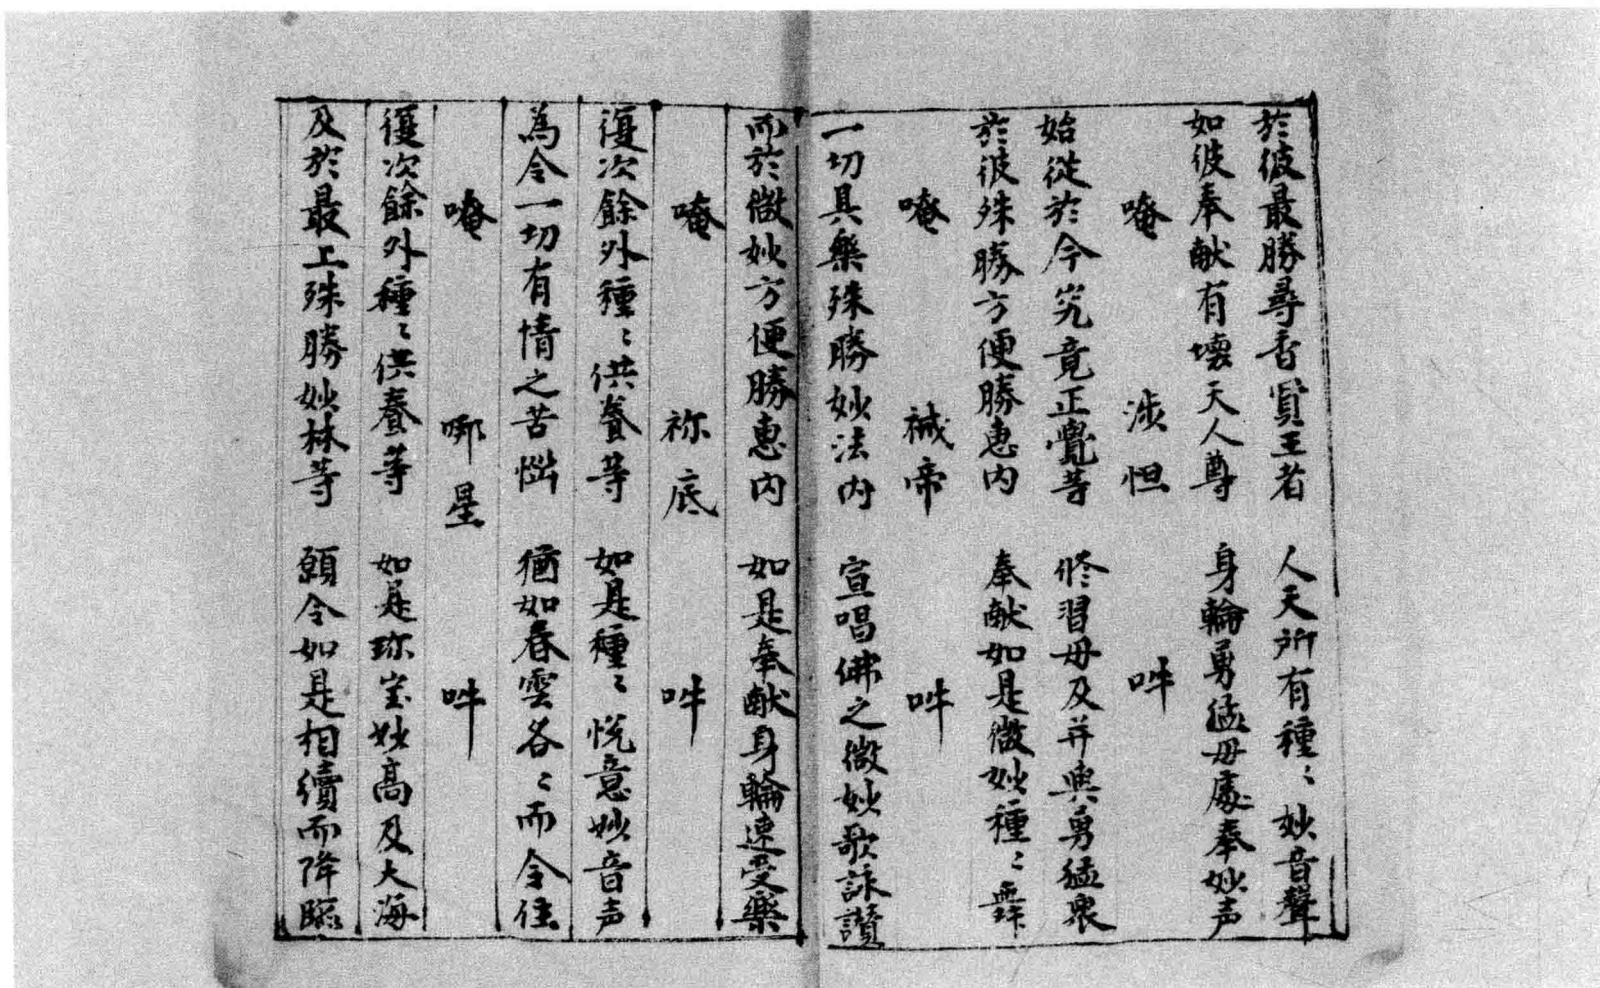 於彼最勝尋香實王者　人天所有種〻妙音聲
如彼奉献有壞天人尊　身輪勇猛母處奉妙声
唵　渉怛　吽
始從於今究竟正覺等　修習母及并與勇猛衆
於彼殊勝方便勝惠內　奉献如是微妙種〻舞
唵　祴帝　吽
一切具樂殊勝妙法內　宣唱佛之微妙歌詠讚
而於微妙方便勝惠內　如是奉献身輪速受樂
唵　祢底　吽
復次餘外種〻供養等　如是種〻悦意妙音声
為令一切有情之苦惱　猶如春雲各〻而令住
唵　哪星　吽
復次餘外種〻供養等　如是珎宝妙高及大海
及於最上殊勝妙林等　願令如是相續而降臨